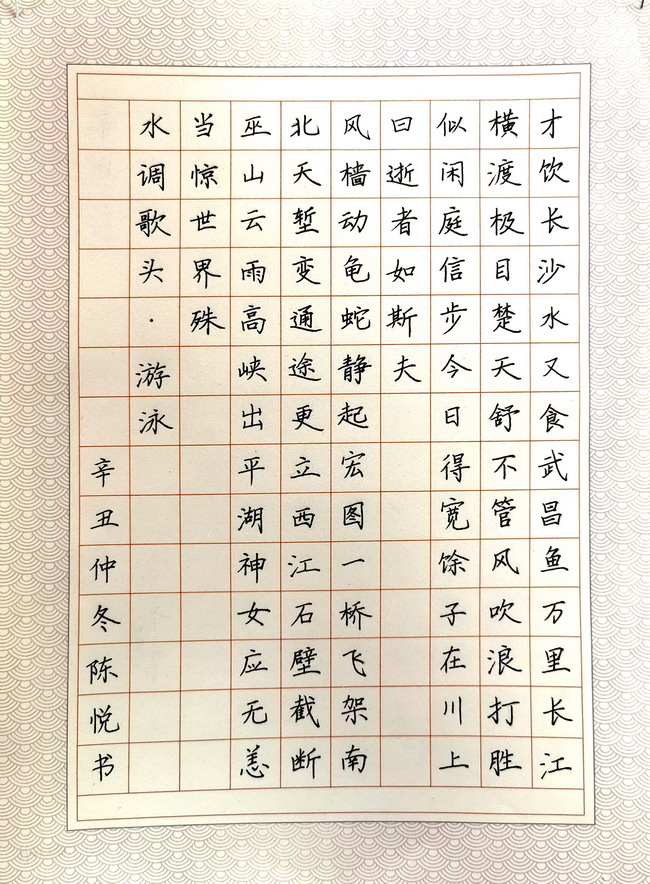 才饮长沙水又食武昌鱼万里长江
横渡极目楚天舒不管风吹浪打胜
似闲庭信步今日得宽馀子在川上
曰逝者如斯夫
风樯动龟蛇静起宏图一桥飞架南
北天堑变通途更立西江石壁截断
巫山云雨高峡出平湖神女应无恙
当惊世界殊
水调歌头·游泳
辛丑仲冬陈悦书